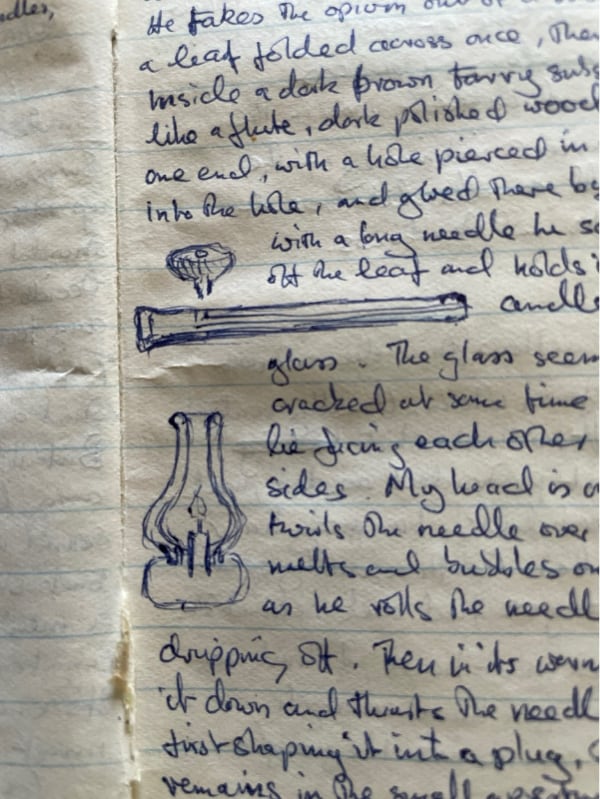 dles,
He takes the opium out of a
a leaf folded across once, then
inside a dark brown tarry subs
like a flute, dark polished wood
one end, with a hole pierced in
into the hole, and glued there by
with a long needle he sc
off the leaf and holds i
candle
glass. The glass seem
cracked at some time
lie facing each other
sides. My head is o
twirls the needle over
melts and bubbles on
as he rolls the needl
dripping off. Then in its warm
it down and thrusts the needl
first shaping it into a plug,
remains in the small